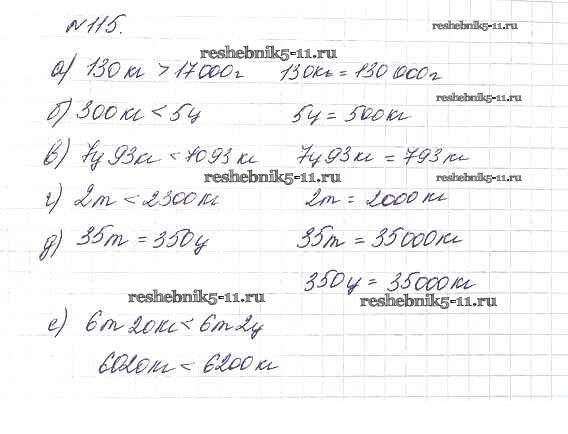 №115.
reshebnik5-11.ru
reshebnik5-11.ru
а) 130кг > 17000г 130кг = 130 000г
reshebnik5-11.ru
б) 300кг < 5ц 5ц = 500кг
в) 7ц 93кг < 7093 кг 7ц 93кг = 793 кг
reshebnik5-11.ru
reshebnik5-11.ru
г) 2т < 2300кг 2т = 2000 кг
д) 35т = 350ц 35т = 35000кг
350ц = 35000кг
reshebnik5-11.ru
reshebnik5-11.ru
е) 6т 20кг < 6т 2ц
6020кг < 6200кг